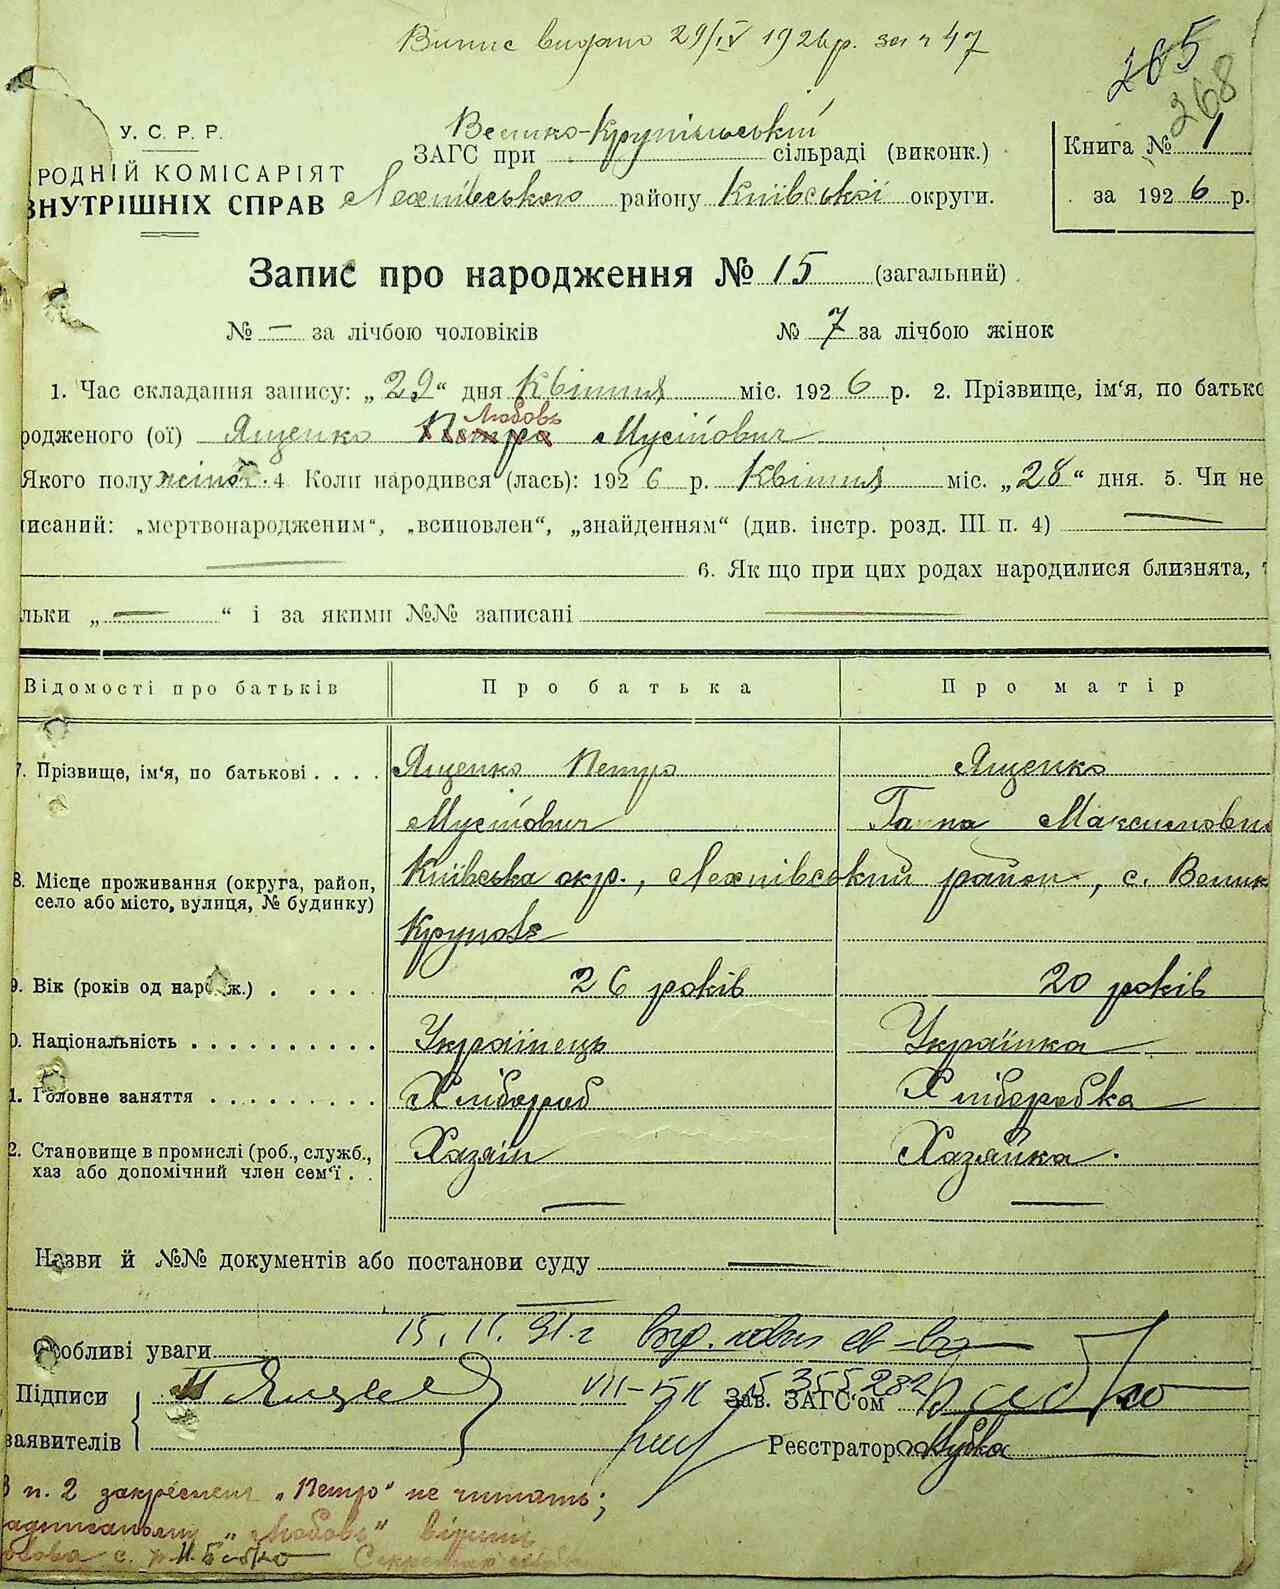 Випис видано 29/IV 1926 р. за ч 47
265
268
У. С. Р. Р.
РОДНІЙ КОМІСАРІЯТ
ВНУТРІШНІХ СПРАВ
Велико-Крупільський
ЗАГС при сільраді (виконк.)
Яхнівського району Київської округи.
Книга № 1
за 1926 р.
Запис про народження № 15 (загальний)
№ — за лічбою чоловіків № 7 за лічбою жінок
1. Час складання запису: „29“ дня Квітня міс. 1926 р. 2. Прізвище, ім‘я, по батько
Любовь
родженого (ої) Ященко Петро Мусійович
Якого полу жіноч. 4 Коли народився (лась): 1926 р. Квітня міс. „28“ дня. 5. Чи не
писаний: „мертвонародженим“, „всиновлен“, „знайденням“ (див. інстр. розд. III п. 4) —
— 6. Як що при цих родах народилися близнята,
льки „—“ і за якими №№ записані —
Відомості про батьків Про батька Про матір
7. Прізвище, ім‘я, по батькові . . . . Ященко Петро Ященко
Мусійович Ганна Максимовн
8. Місце проживання (округа, район, село або місто, вулиця, № будинку) Київська окр., Яхнівський район, с. Велик
Круполє
9. Вік (років од нарож.) . . . . 26 років 20 років
0. Національність . . . . . . . . . . Українець Українка
1. Головне заняття . . . . . . . . . Хлібороб Хліборобка
2. Становище в промислі (роб., служб., хаз або допомічний член сем‘ї . . Хазяїн Хазяйка.
— —
Назви й №№ документів або постанови суду —
Особливі уваги 15. II. 91. г выд. повт св-во
Підписи П Ященко VII-БК № 355282 Зав. ЗАГС‘ом Бабко
заявителів Реєстратор
В п. 2 закреслені „Петро“ не читать;
„Любовь“ вірити
Голова с. р. И. Бабко Секретар